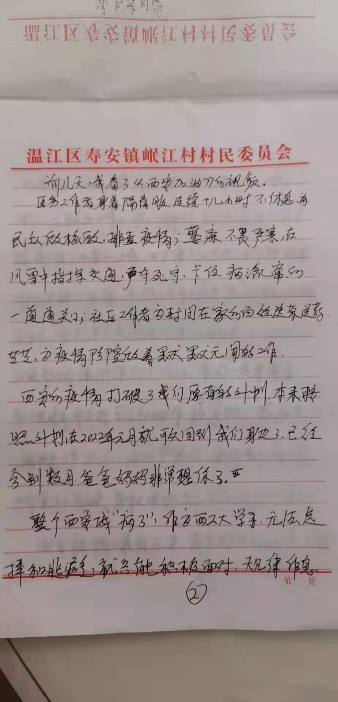 温江区寿安镇岷江村村民委员会
温江区寿安镇岷江村村民委员会
前几天,我看了《西安加油》的视频。
医务工作者身着隔离服连续十几小时不休息为
民众做核酸,排查疫情;警察不畏严寒,在
风雪中指挥交通,严守死守,卡住病流窜的
一道道关口;社区工作者为封闭在家的百姓送菜送药
为疫情防控做着默默无闻的工作。
西安的疫情打破了我们原有的计划,本来按
照计划,在2022年元月就可以回到我们身边了,已经
分别数月,爸爸妈妈非常想你了。
整个西安城"病了",作为西工大学子,无法选
择和逃避,就只能积极面对,规律作息
第 页
②